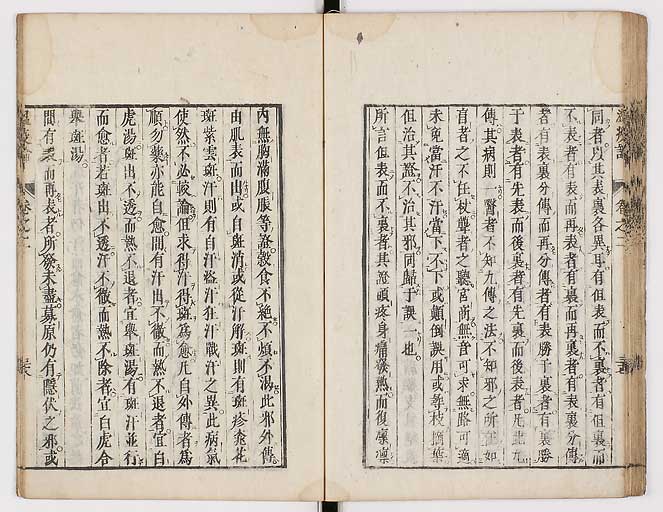 同者以其表裏各異耳有但表而不裏者有但裏而
不表者有表而再表者有裏而再裏者有表裏分傳
者有表裏分傳而再分傳者有表勝于裏者有裏勝
于表者有先表而後裏者有先裏而後表者凡此九
傳其病則一醫者不知九傳之法不知邪之所在如
盲者之不任杖聾者之聽宮商無音可求無路可適
未免當汗不汗當下不下或顛倒誤用或尋枝摘葉
但治其證不治其邪同歸于誤一也
所言但表而不裏者其證頭疼身痛發熱而復凛凛
内無胸滿腹脹等證穀食不絶不煩不渴此邪外傳
由肌表而出或自斑消或從汗解斑則有斑疹桃花
斑紫雲斑汗則有自汗盗汗狂汗戰汗之異此病氣
使然不必較論但求得汗得斑為愈凡自外傳者爲
順勿藥亦能自愈間有汗出不徹而熱不退者宜白
虎湯斑出不透而熱不退者宜舉斑湯有斑汗並行
而愈者若斑出不透汗不徹而熱不除者宜白虎合
舉斑湯
間有表而再表者所發未盡募原仍有隱伏之邪或